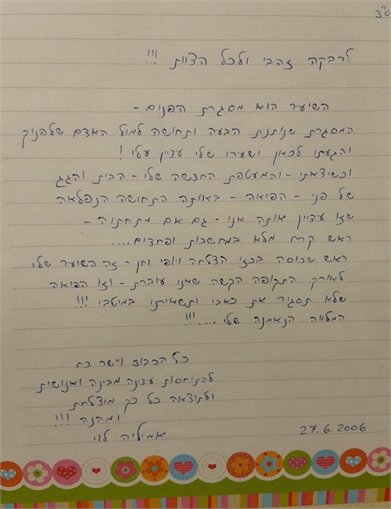 ס"ד
לרבקה זהבי ולכל הצוות !!!
השיער הוא מסגרת הפנים -
המסגרת שנותנת הבעה ותחושה למול האדם שלפניך
והגעתי לכאן ושערו שלי עדיין עלי !
וכשיצאתי - והמעטפת החדשה שלי - הבית והגג
של פני - הפיאה - באותה התחושה הנפלאה
שזו עדיין אותה אני - גם אם מתחתיה -
ראש קרח מלא במחשבות ופחדים....
ראש שכוסה בכזו הצלחה ויופי וחן - זה השיער שלי
לאורך התקופה הקשה שאני עוברת - וזו הפיאה
שלא תסגיר את כאבי ותשאיתו במיטבי !!!
המלווה הנאמנה שלי ....!!!
כל הכבוד ויישר כח
להתיחסות עדינה מבינה ואנושית
ולתוצאה כל כך מוצלחת
ומהנה !!!
אמיליה לוי
27.6.2006